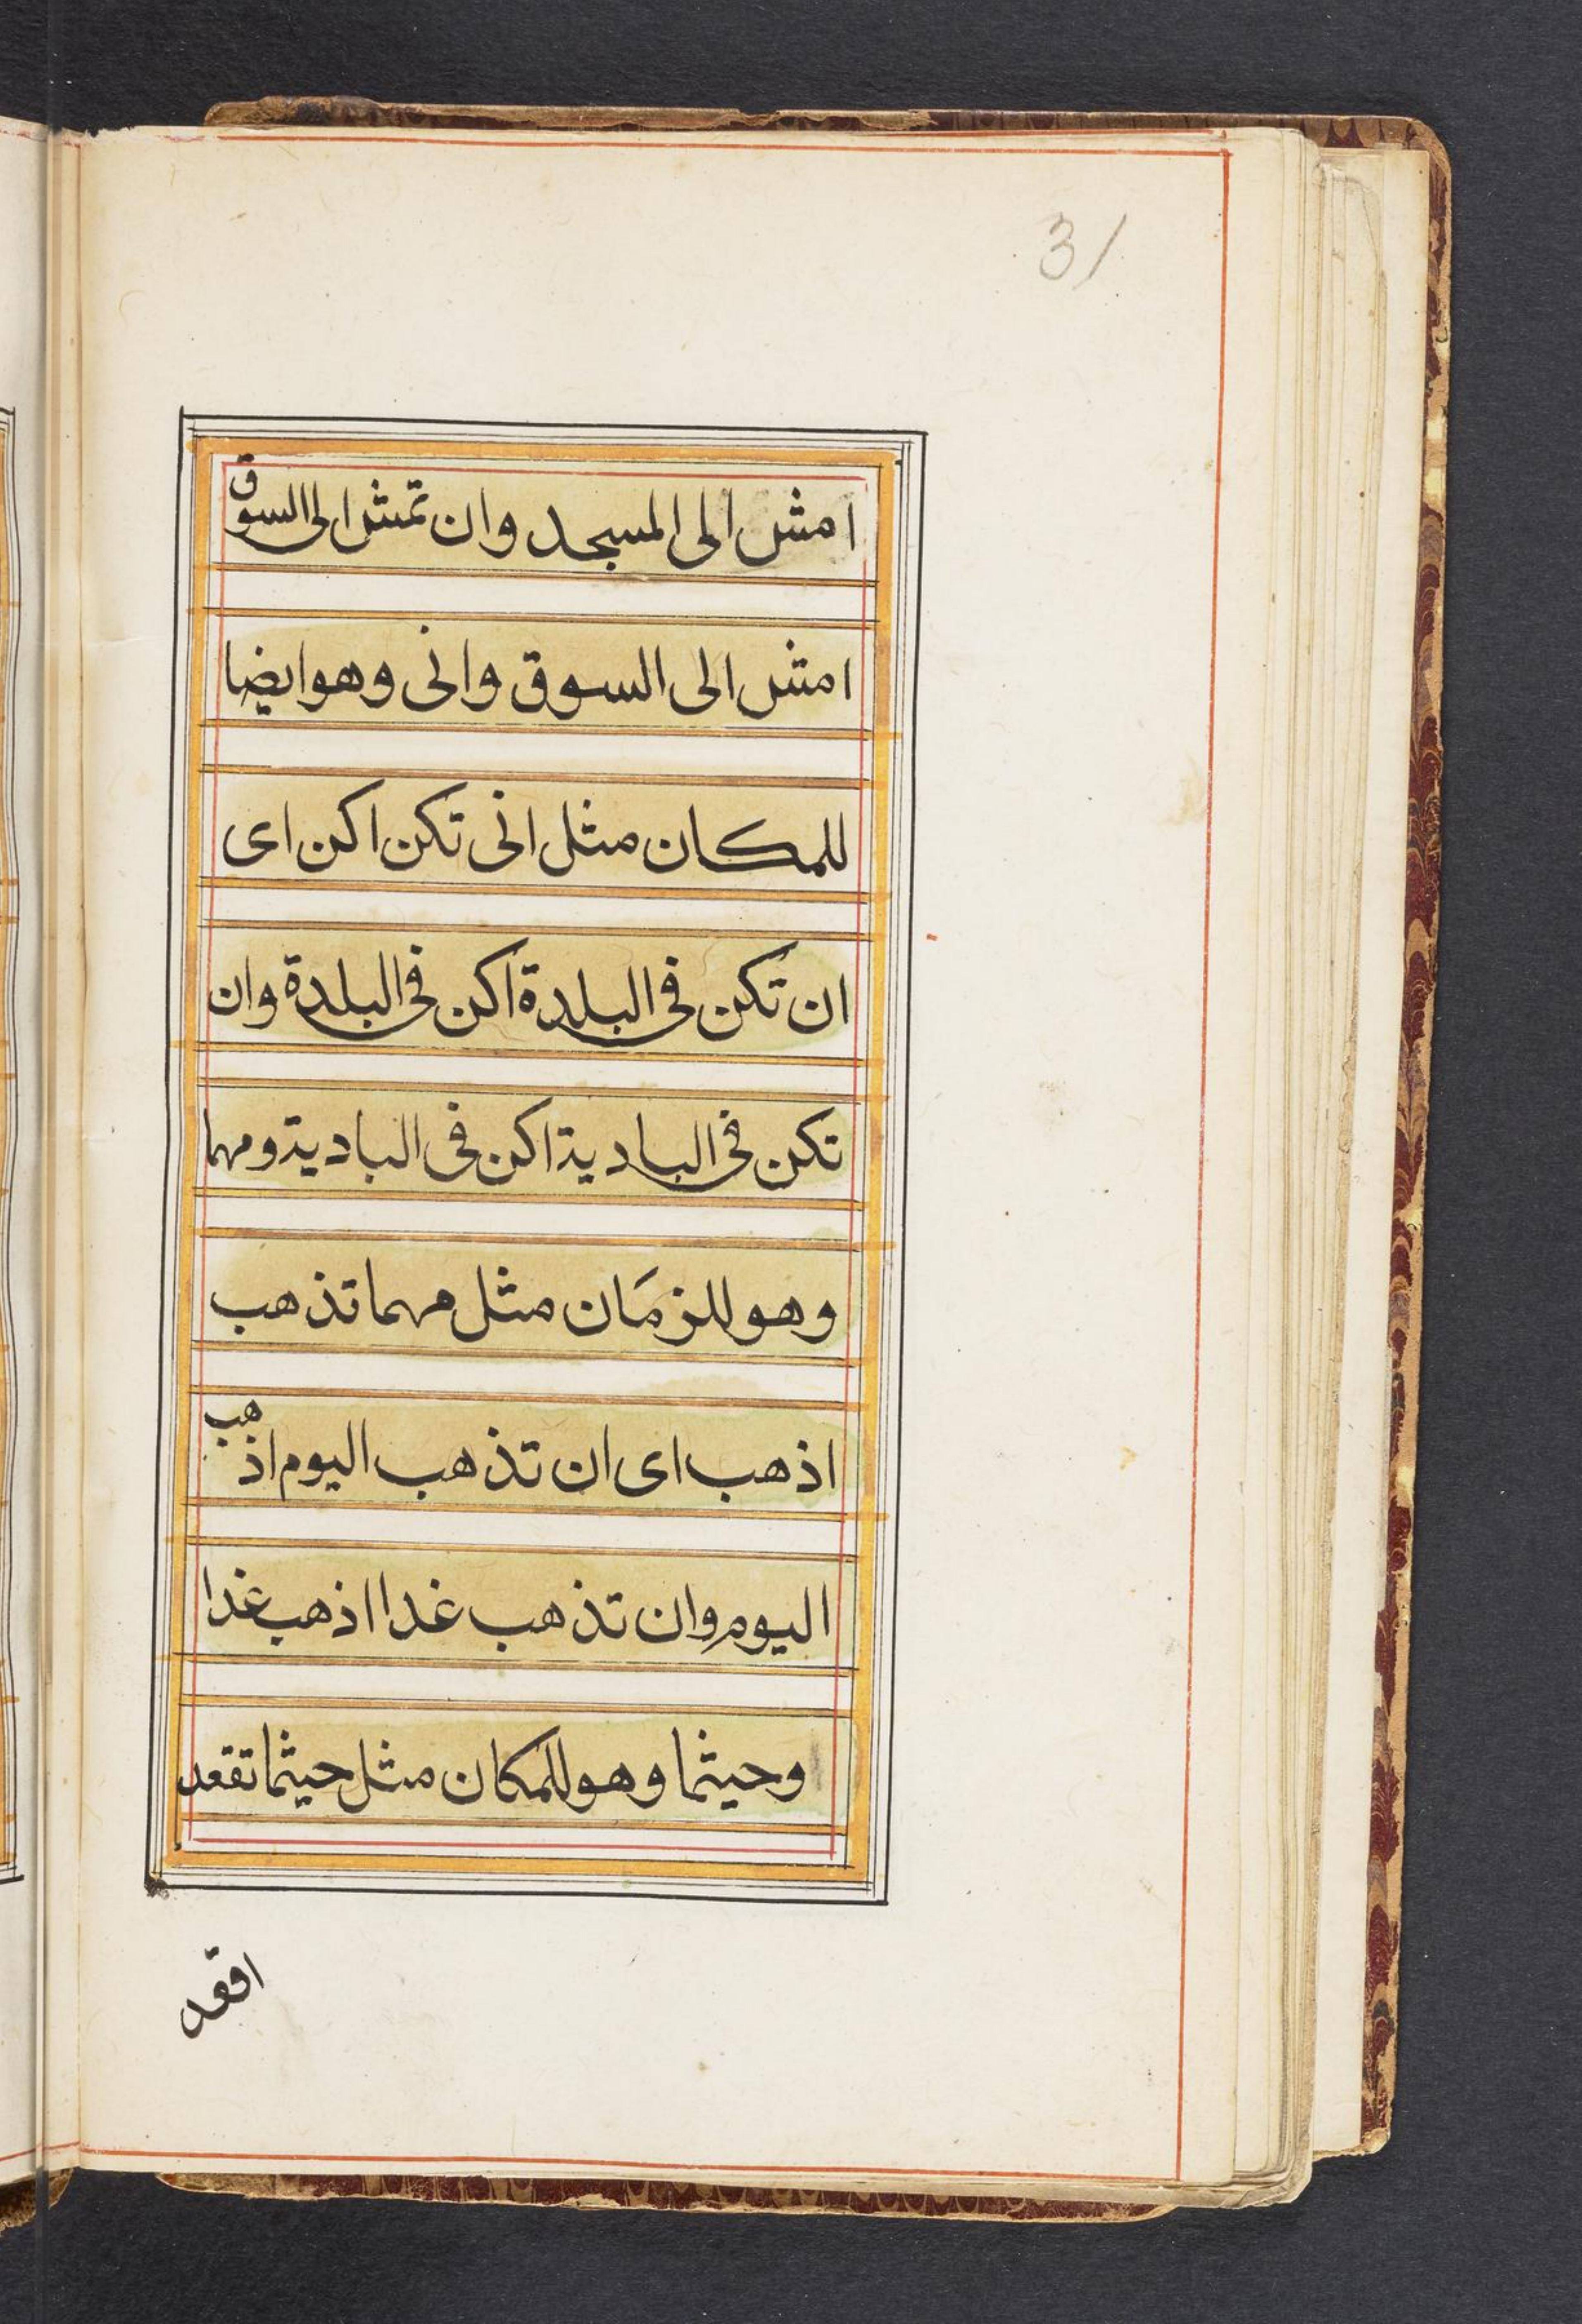 31
امش الى المسجد وان تمش الى السوق
امش الى السوق وانى وهو ايضا
للمكان مثل انى تكن اكن اى
ان تكن فى البلدة اكن فى البلدة وان
تكن فى البادية اكن فى البادية ومهما
وهو للزمَان مثل مهما تذهب
اذهب اى ان تذهب اليوم اذهب
اليوم وان تذهب غدا اذهب غدا
وحيثما وهو للمكان مثل حيثما تقعد
اقعد